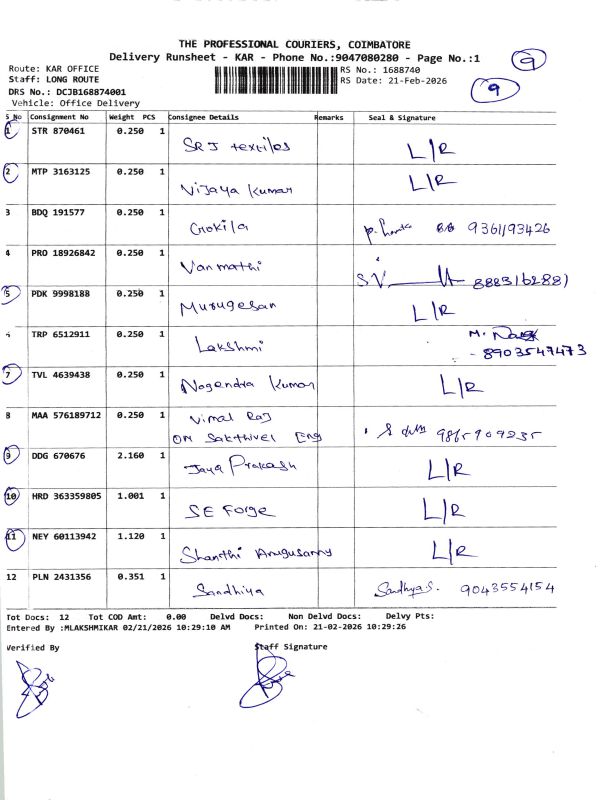 THE PROFESSIONAL COURIERS, COIMBATORE
Delivery Runsheet - KAR - Phone No.:9047080280 - Page No.:1
9
Route: KAR OFFICE
RS No.: 1688740
Staff: LONG ROUTE
RS Date: 21-Feb-2026
9
DRS No.: DCJB168874001
Vehicle: Office Delivery
S No Consignment No Weight PCS Consignee Details Remarks Seal & Signature
1 STR 870461 0.250 1 SRJ textiles L/R
2 MTP 3163125 0.250 1 Vijaya Kumar L/R
3 BDQ 191577 0.250 1 Gokila 9361193426
4 PRO 18926842 0.250 1 Vanmathi S.V
5 PDK 9998188 0.250 1 Murugesan L/R
TRP 6512911 0.250 1 Lakshmi M.
8903547473
7 TVL 4639438 0.250 1 Nagendra Kumar L/R
8 MAA 576189712 0.250 1 Vimal Raj
OM Sakthivel Eng
9 DDG 670676 2.160 1 Jaya Prakash L/R
10 HRD 363359805 1.001 1 SE Forge L/R
11 NEY 60113942 1.120 1 Shanthi L/R
12 PLN 2431356 0.351 1 Sandhiya Sandhya S. 9043554154
Tot Docs: 12 Tot COD Amt: 0.00 Delvd Docs: Non Delvd Docs: Delvy Pts:
Entered By :MLAKSHMIKAR 02/21/2026 10:29:10 AM Printed On: 21-02-2026 10:29:26
Verified By Staff Signature